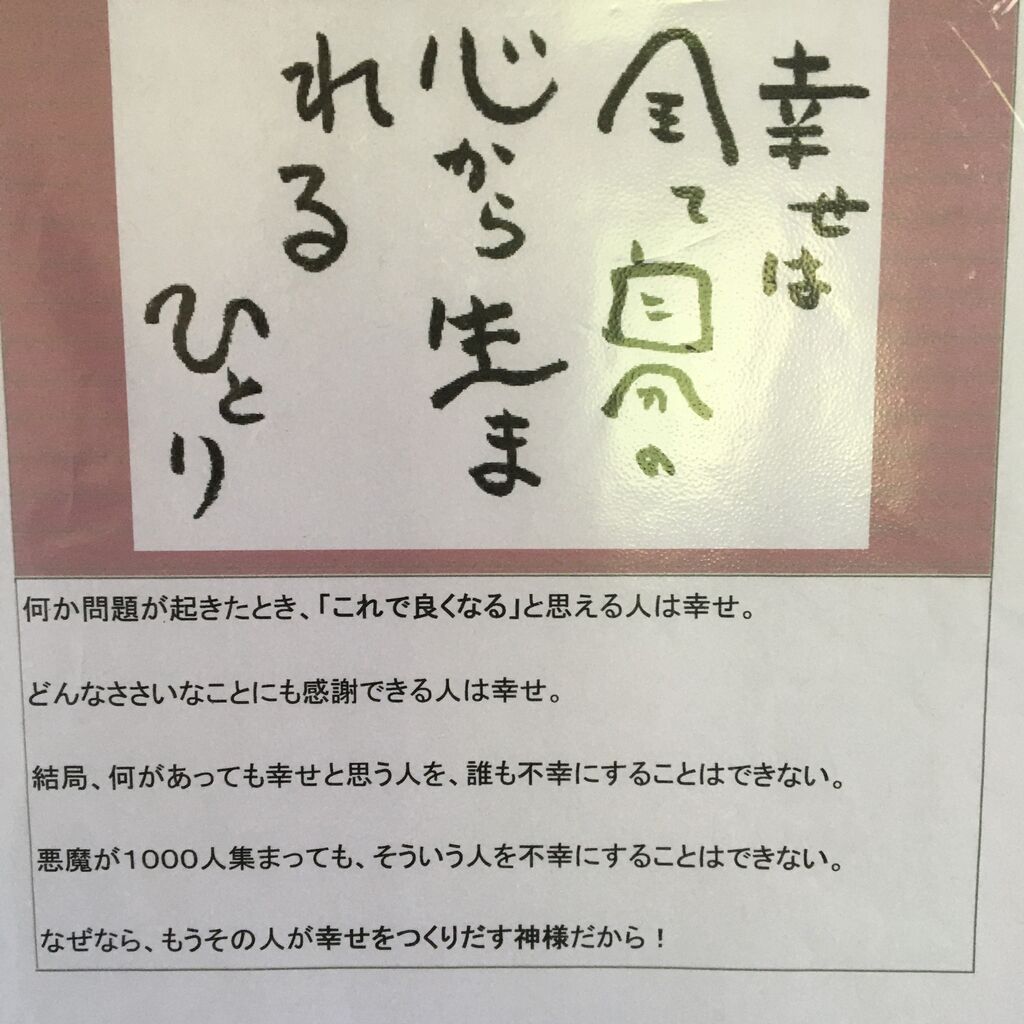 幸せは
全て自分の
心から生ま
れる
ひとり
何か問題が起きたとき、「これで良くなる」と思える人は幸せ。
どんなささいなことにも感謝できる人は幸せ。
結局、何があっても幸せと思う人を、誰も不幸にすることはできない。
悪魔が1000人集まっても、そういう人を不幸にすることはできない。
なぜなら、もうその人が幸せをつくりだす神様だから！